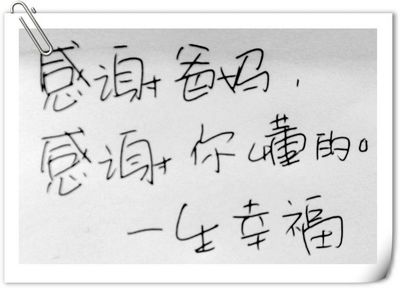 感谢爸妈，
感谢你懂的。
一生幸福